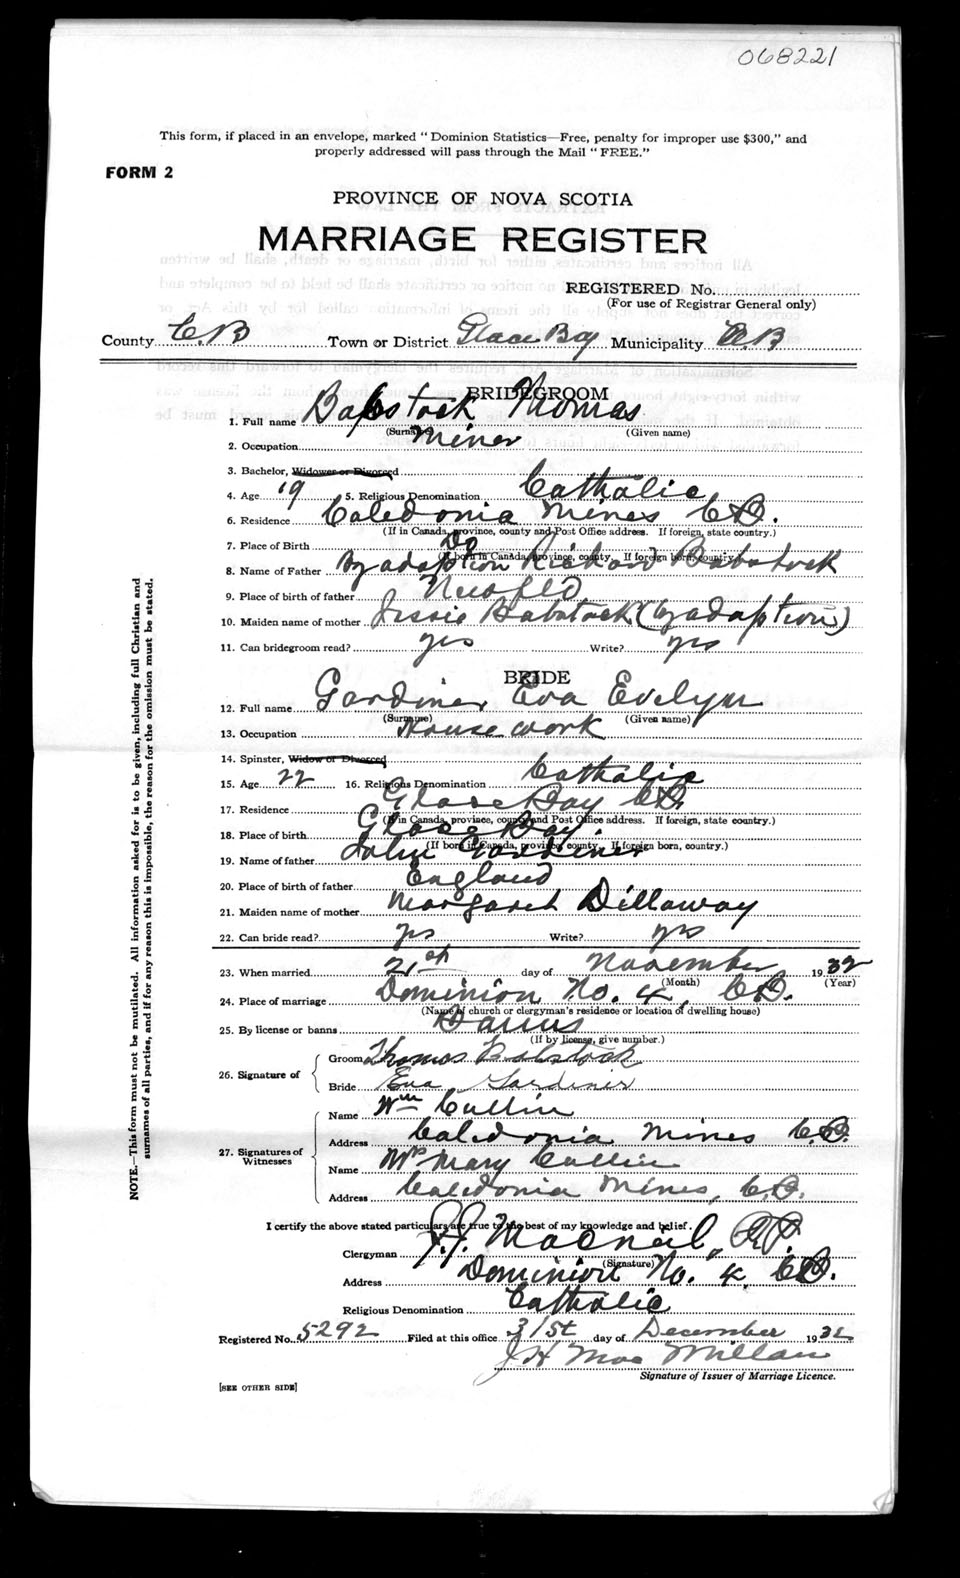 068221
This form, if placed in an envelope, marked "Dominion Statistics—Free, penalty for improper use $300," and
properly addressed will pass through the Mail "FREE."
FORM 2
PROVINCE OF NOVA SCOTIA
MARRIAGE REGISTER
REGISTERED No.
(For use of Registrar General only)
County C.B Town or District Glace Bay Municipality C.B
BRIDEGROOM
1. Full name Babstock Thomas
(Surname) (Given name)
2. Occupation Miner
3. Bachelor, Widower or Divorced
4. Age 19 5. Religious Denomination Catholic
6. Residence Caledonia Mines C.B.
(If in Canada, province, county and Post Office address. If foreign, state country.)
7. Place of Birth Do
(If born in Canada, province, county. If foreign born, country.)
8. Name of Father By adoption Richard Babstock
9. Place of birth of father Newfld
10. Maiden name of mother Jessie Babstock (by adaption)
11. Can bridegroom read? yes Write? yes
BRIDE
12. Full name Gardiner Eva Evelyn
(Surname) (Given name)
13. Occupation House work
14. Spinster, Widow or Divorced
15. Age 22 16. Religious Denomination Catholic
17. Residence Glace Bay C.B.
(If in Canada, province, county and Post Office address. If foreign, state country.)
18. Place of birth Glace Bay.
(If born in Canada, province, county. If foreign born, country.)
19. Name of father John Gardiner
20. Place of birth of father England
21. Maiden name of mother Margaret Dillaway
22. Can bride read? yes Write? yes
23. When married 21st day of November 1932
(Month) (Year)
24. Place of marriage Dominion No. 4, C.B.
(Name of church or clergyman's residence or location of dwelling house)
25. By license or banns Banns
(If by license, give number.)
26. Signature of
Groom Thomas Babstock
Bride Eva Gardiner
27. Signatures of Witnesses
Name Wm Cullin
Address Caledonia Mines C.B.
Name Mrs Mary Cullin
Address Caledonia Mines, C.B.
I certify the above stated particulars are true to the best of my knowledge and belief.
Clergyman J.J. Macneil, P.P.
(Signature)
Address Dominion No. 4, C.B.
Religious Denomination Catholic
Registered No. 5292 Filed at this office 31st day of December 1932
J H MacMillan
Signature of Issuer of Marriage Licence.
[SEE OTHER SIDE]
NOTE.—This form must not be mutilated. All information asked for is to be given, including full Christian and
surnames of all parties, and if for any reason this is impossible, the reason for the omission must be stated.